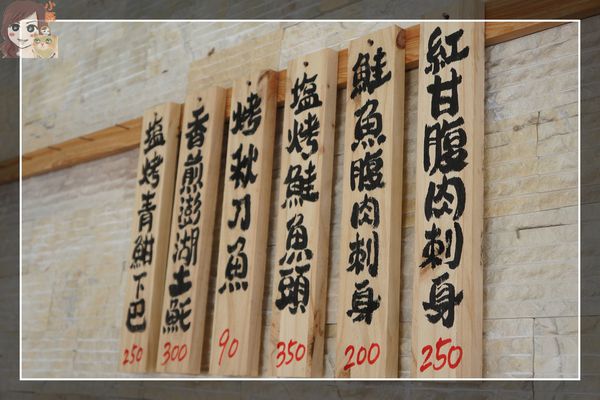 紅甘腹肉刺身
250
鮭魚腹肉刺身
200
塩烤鮭魚頭
350
烤秋刀魚
90
香煎澎湖土魠
300
塩烤青魽下巴
250